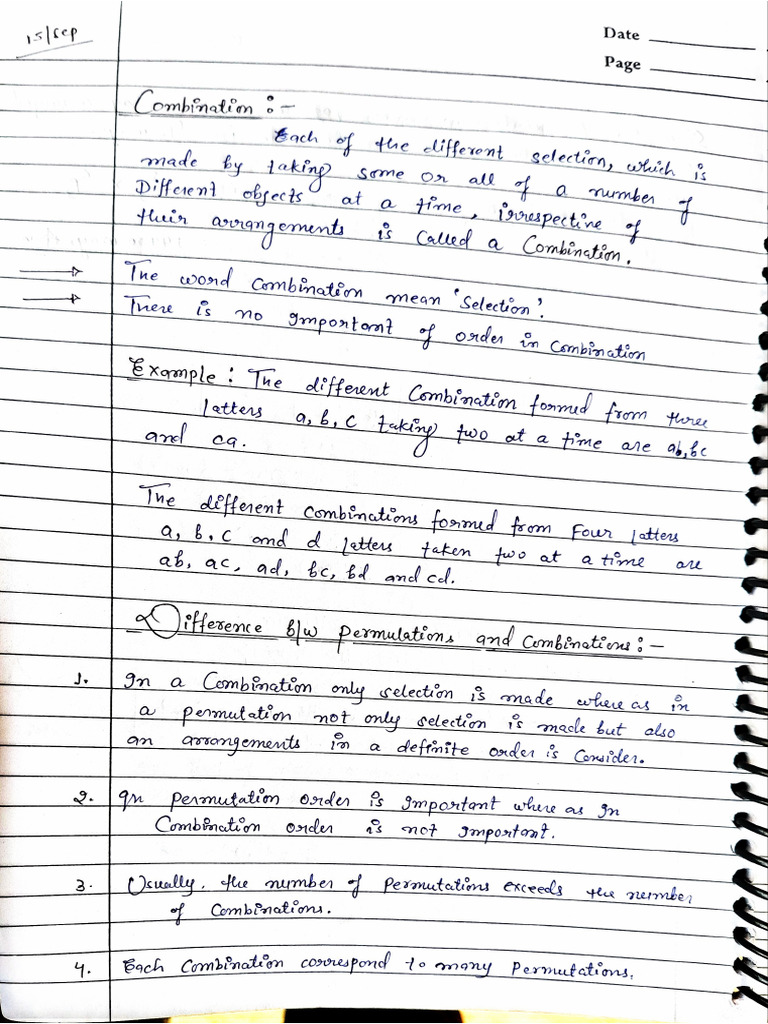 15/Sep
Date
Page
Combination :-
Each of the different selection, which is
made by taking some or all of a number of
Different objects at a time, irrespective of
their arrangements is Called a Combination.
The word Combination mean 'Selection'.
There is no important of order in Combination
Example : The different Combination formed from three
latters a, b, c taking two at a time are ab, bc
and ca.
The different Combinations formed from Four latters
a, b, c and d latters taken two at a time are
ab, ac, ad, bc, bd and cd.
Difference b/w Permulations and Combinations :-
1. In a Combination only selection is made where as in
a permutation not only selection is made but also
an arrangements in a definite order is Consider.
2. In permutation order is important where as In
Combination order is not important.
3. Usually, the number of Permutations exceeds the number
of Combinations.
4. Each Combination correspond to many Permutations.